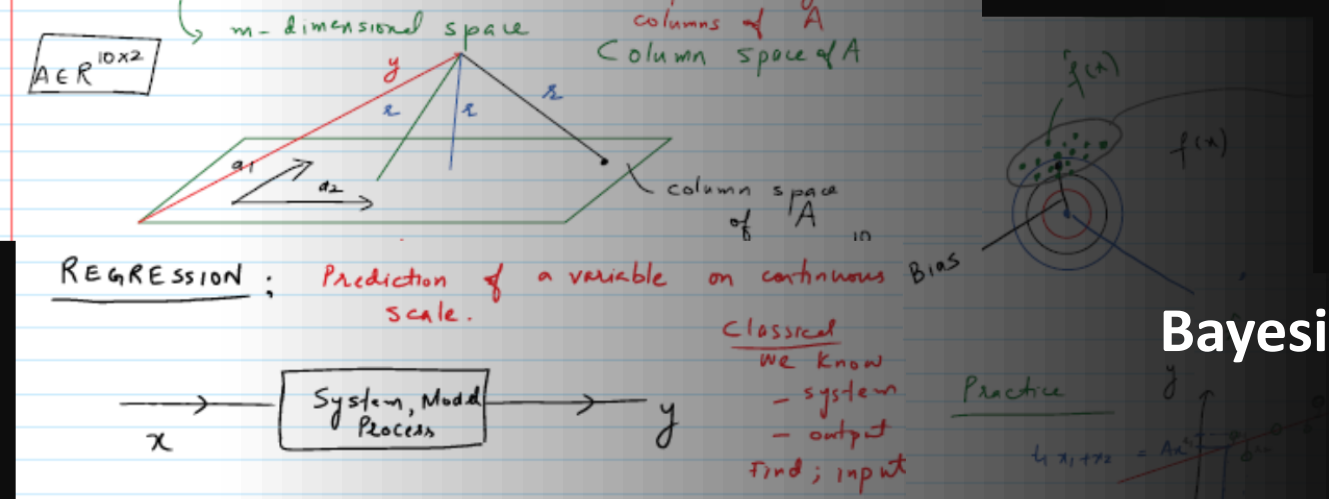 m - dimensional space
columns of A
Column space of A
A ∈ R^10x2
y
r
r
r
a1
a2
column space
of A
10
f(x)
f(x)
Bias
REGRESSION : Prediction of a variable on continuous
scale.
Classical
we know
- system
- output
Find ; input
x
System, Model
Process
y
Bayesi
Practice
y
x1 + x2 =